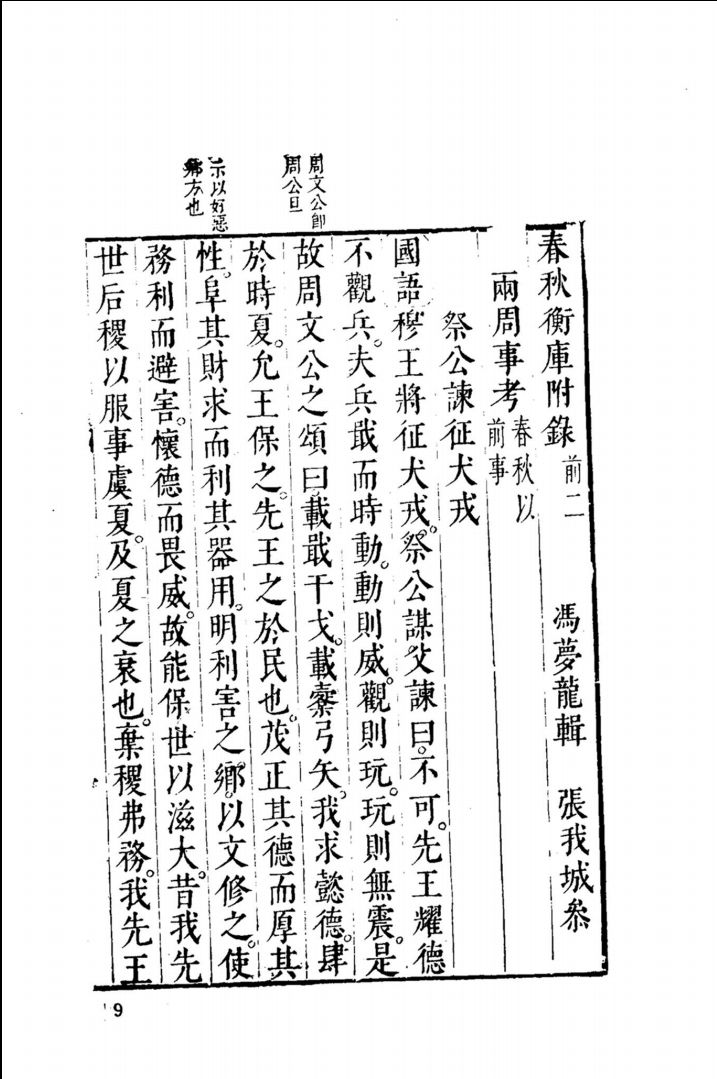 春秋衡庫附錄 前二 馮夢龍輯 張我城叅
兩周事考 春秋以
前事
祭公諫征犬戎
國語穆王將征犬戎。祭公謀父諫曰。不可。先王耀德
不觀兵。夫兵戢而時動。動則威。觀則玩。玩則無震。是
周文公即
周公旦
故周文公之頌曰。載戢干戈。載櫜弓矢。我求懿德。肆
於時夏。允王保之。先王之於民也。茂正其德而厚其
示以好惡
鄉方也
性。阜其財求而利其器用。明利害之鄉。以文修之。使
務利而避害。懷德而畏威。故能保世以滋大。昔我先
世后稷以服事虞夏。及夏之衰也。棄稷弗務。我先王
9